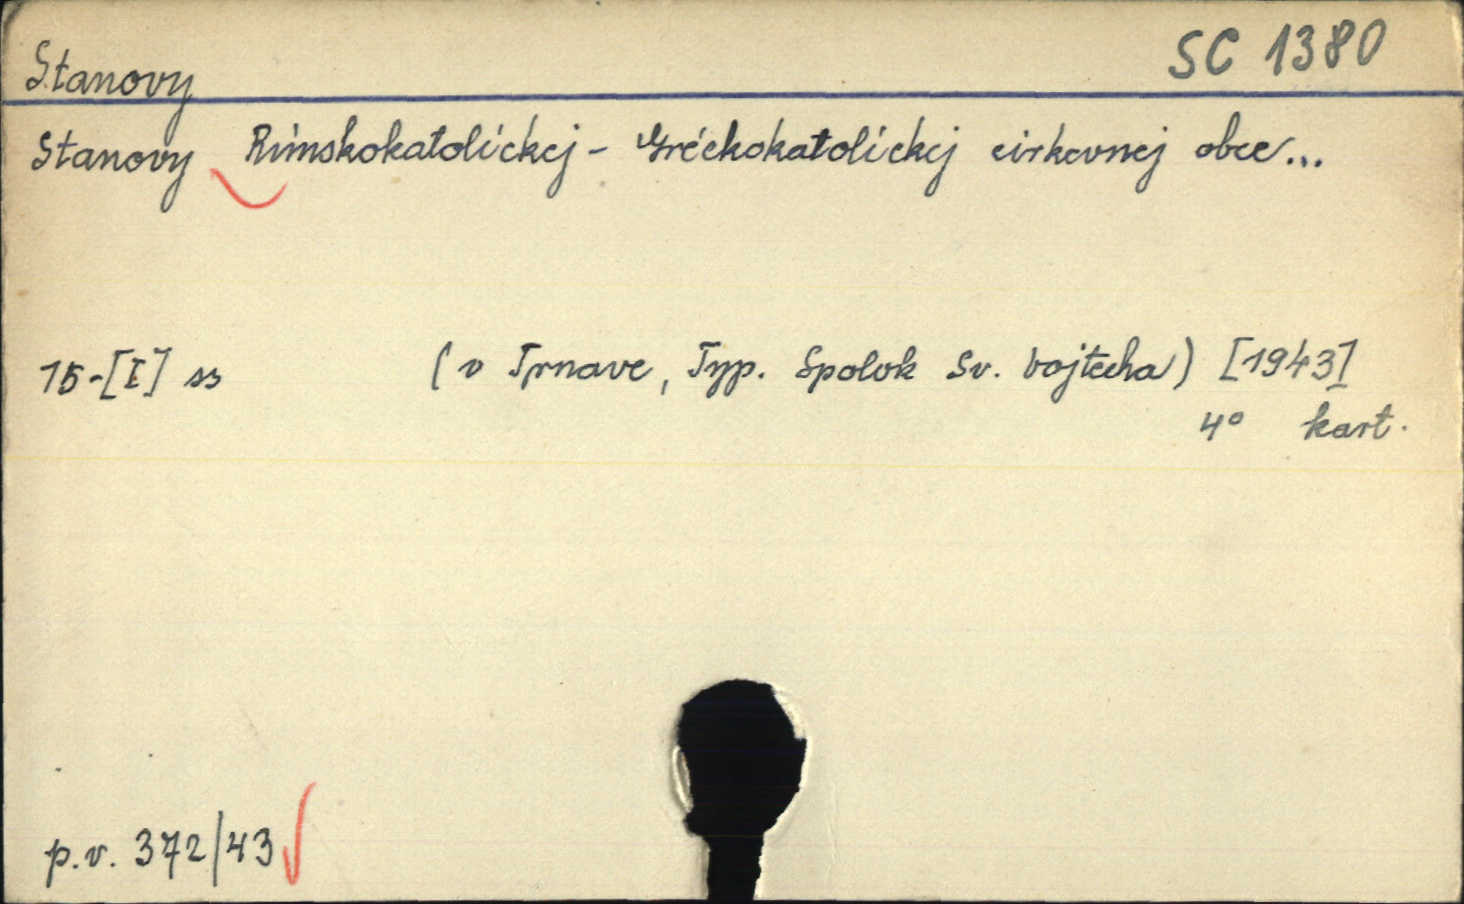 SC 1380
Stanovy
Stanovy Rímskokatolíckej - Gréckokatolíckej cirkevnej obce...
15-[I] ss (v Trnave, Typ. Spolok Sv. Vojtecha) [1943]
4° kart.
p.v. 372/43